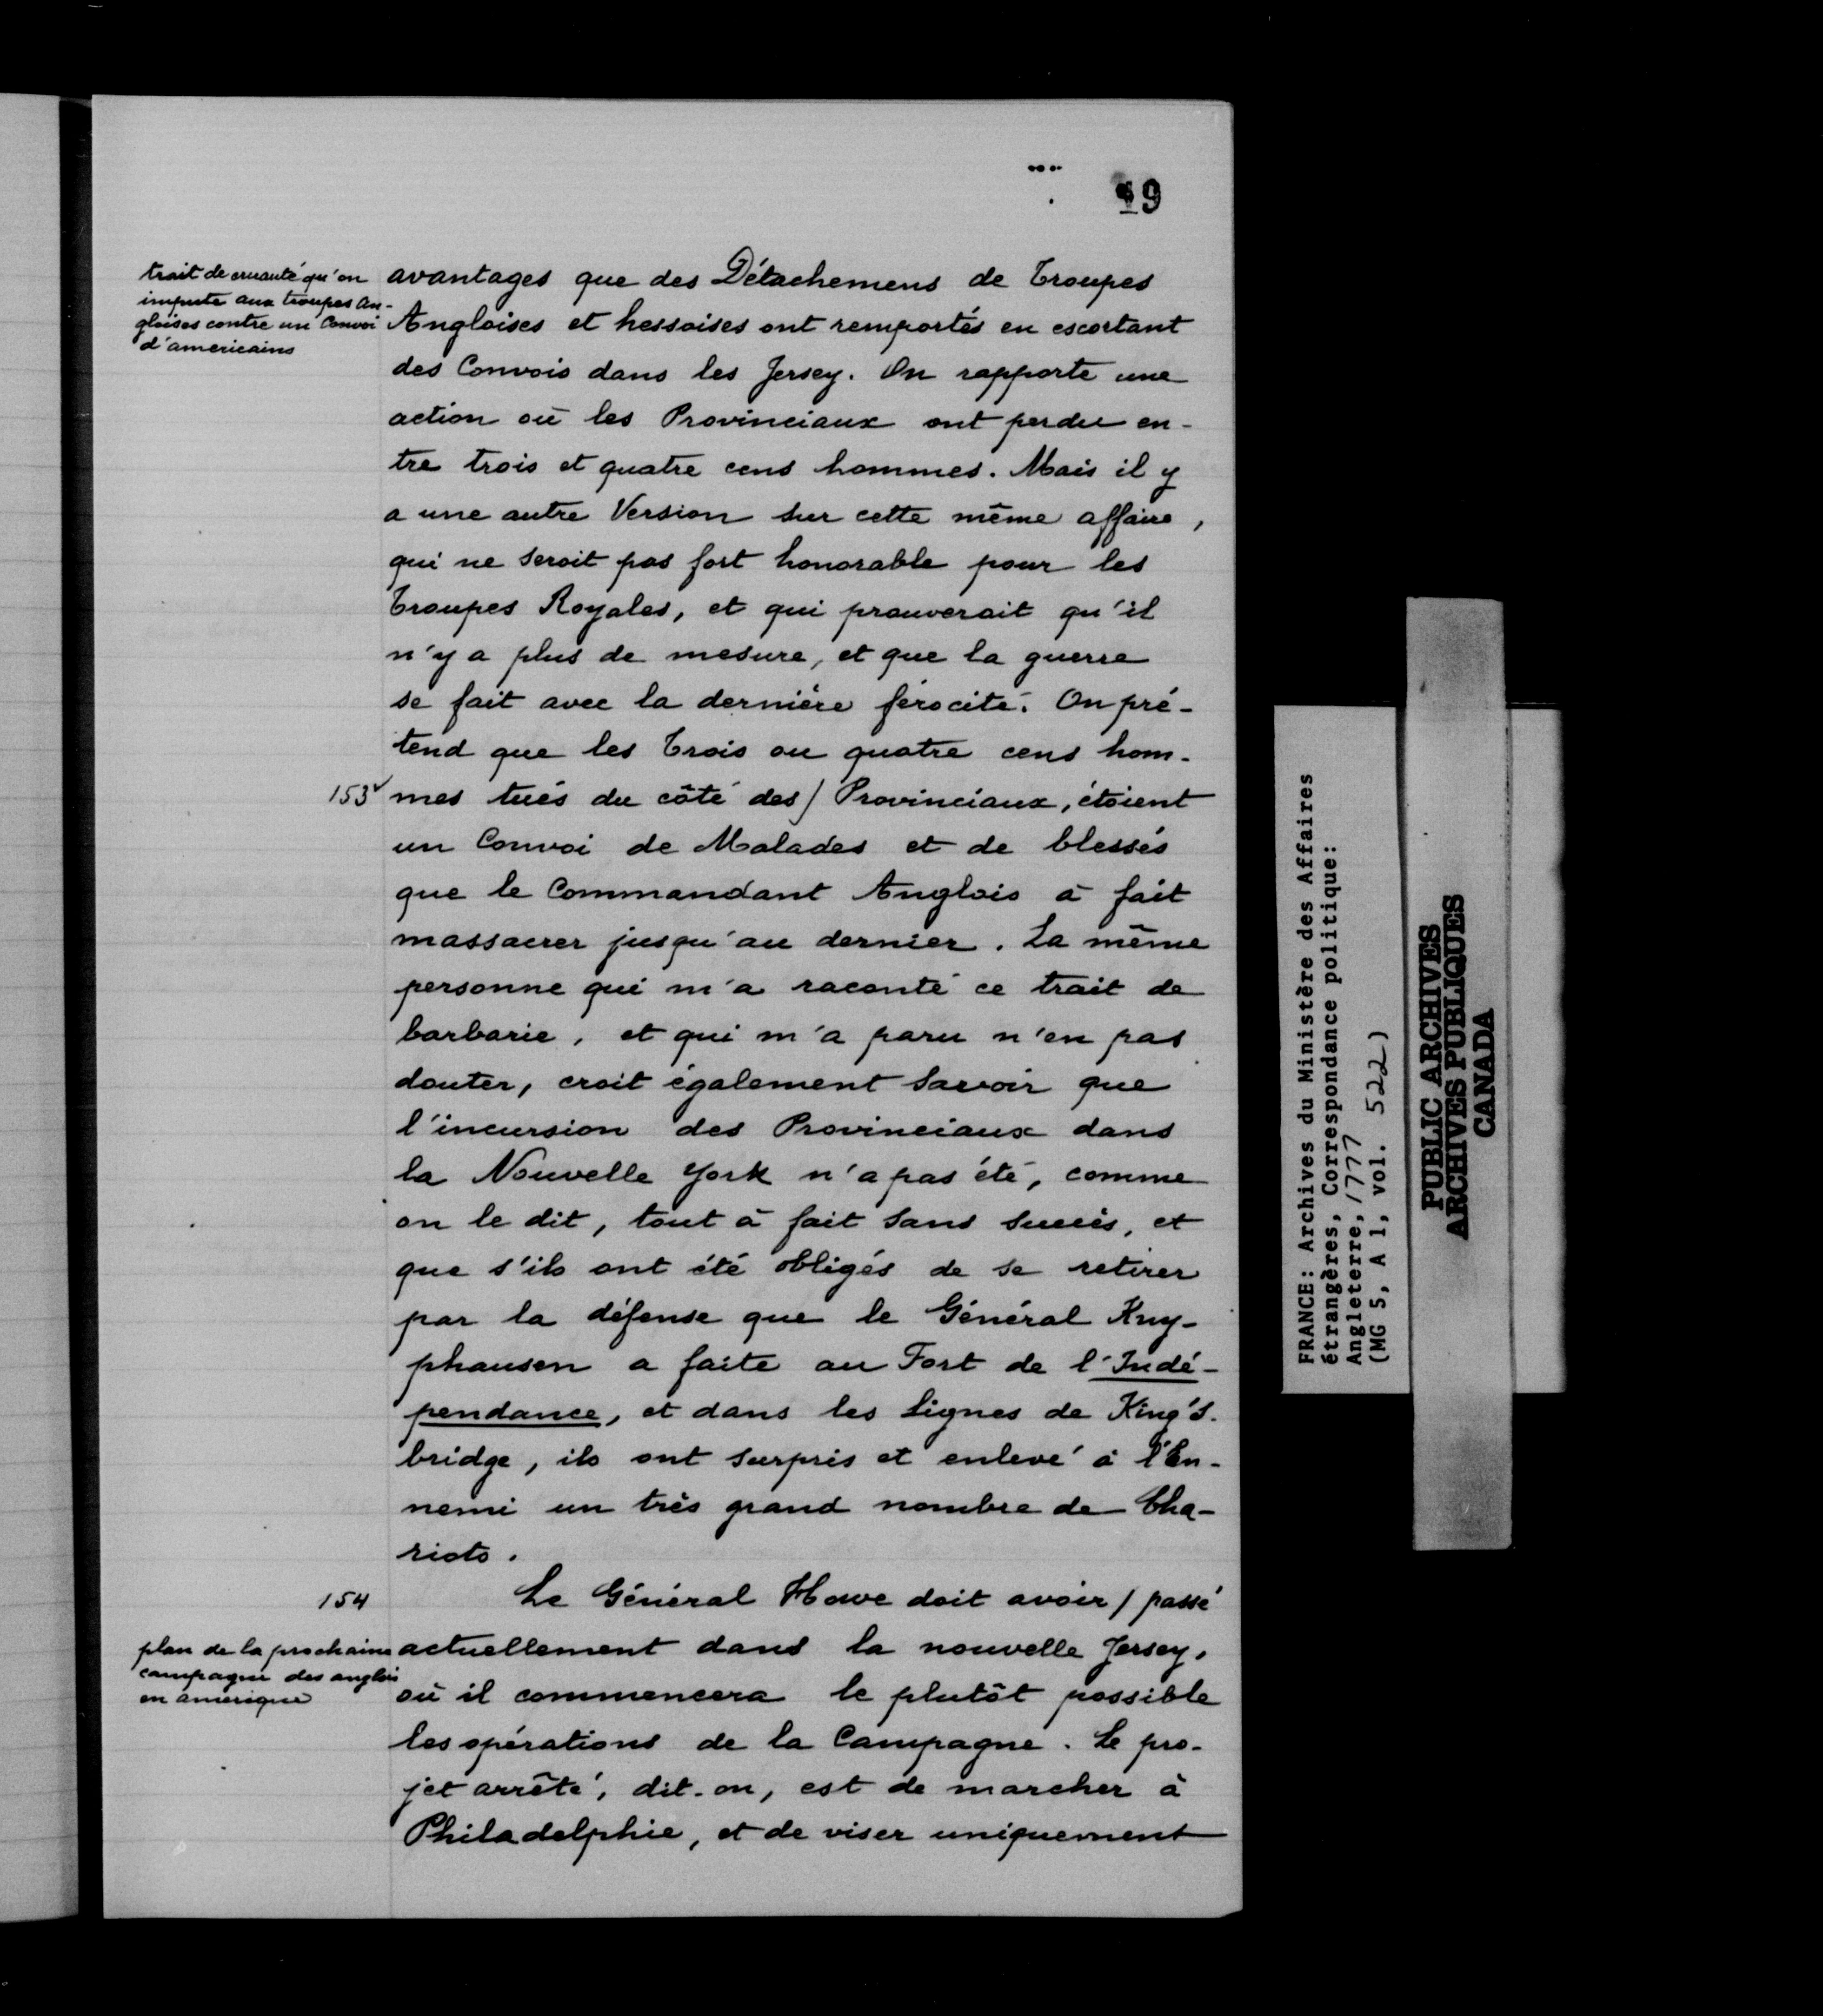 19
trait de cruauté qu'on
impute aux troupes An-
gloises contre un Convoi
d'americains
avantages que des Détachemens de Troupes
Angloises et hessoises ont remportés en escortant
des Convois dans les Jersey. On rapporte une
action où les Provinciaux ont perdu en-
tre trois et quatre cens hommes. Mais il y
a une autre Version sur cette même affaire,
qui ne seroit pas fort honorable pour les
Troupes Royales, et qui prouverait qu'il
n'y a plus de mesure, et que la guerre
se fait avec la dernière férocité. On pré-
tend que les Trois ou quatre cens hom-
153v mes tués du côté des / Provinciaux, étoient
un Convoi de Malades et de blessés
que le Commandant Anglois à fait
massacrer jusqu'au dernier. La même
personne qui m'a raconté ce trait de
barbarie, et qui m'a paru n'en pas
douter, croit également savoir que
l'incursion des Provinciaux dans
la Nouvelle York n'a pas été, comme
on le dit, tout à fait sans succès, et
que s'ils ont été obligés de se retirer
par la défense que le Général Kny-
phausen a faite au Fort de l'Indé-
pendance, et dans les Lignes de King's-
bridge, ils ont surpris et enlevé à l'En-
nemi un très grand nombre de Cha-
riots.
154 Le Général Howe doit avoir / passé
plan de la prochaine
campagne des anglois
en amerique
actuellement dans la nouvelle Jersey,
où il commencera le plutôt possible
les opérations de la Campagne. Le pro-
jet arrêté, dit-on, est de marcher à
Philadelphie, et de viser uniquement
FRANCE: Archives du Ministère des Affaires
étrangères, Correspondance politique:
Angleterre, 1777
(MG 5, A 1, vol. 522)
PUBLIC ARCHIVES
ARCHIVES PUBLIQUES
CANADA